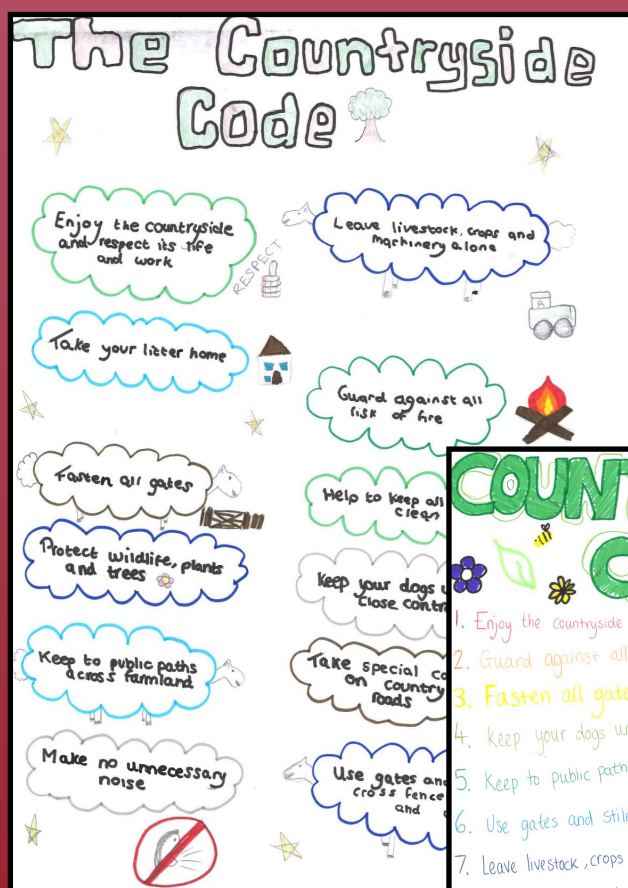 The Countryside
Code
Enjoy the countryside
and respect its life
and work
RESPECT
Take your litter home
Fasten all gates
Protect wildlife, plants
and trees
Keep to public paths
across farmland
Make no unnecessary
noise
Leave livestock, crops and
machinery alone
Guard against all
risk of fire
Help to keep all
clean
Keep your dogs
close
Take special
on country
roads
Use gates and
cross fence
and
COUN
1. Enjoy the countryside
2. Guard against all
3. Fasten all gate
4. Keep your dogs un
5. Keep to public path
6. Use gates and stile
7. Leave livestock, crops